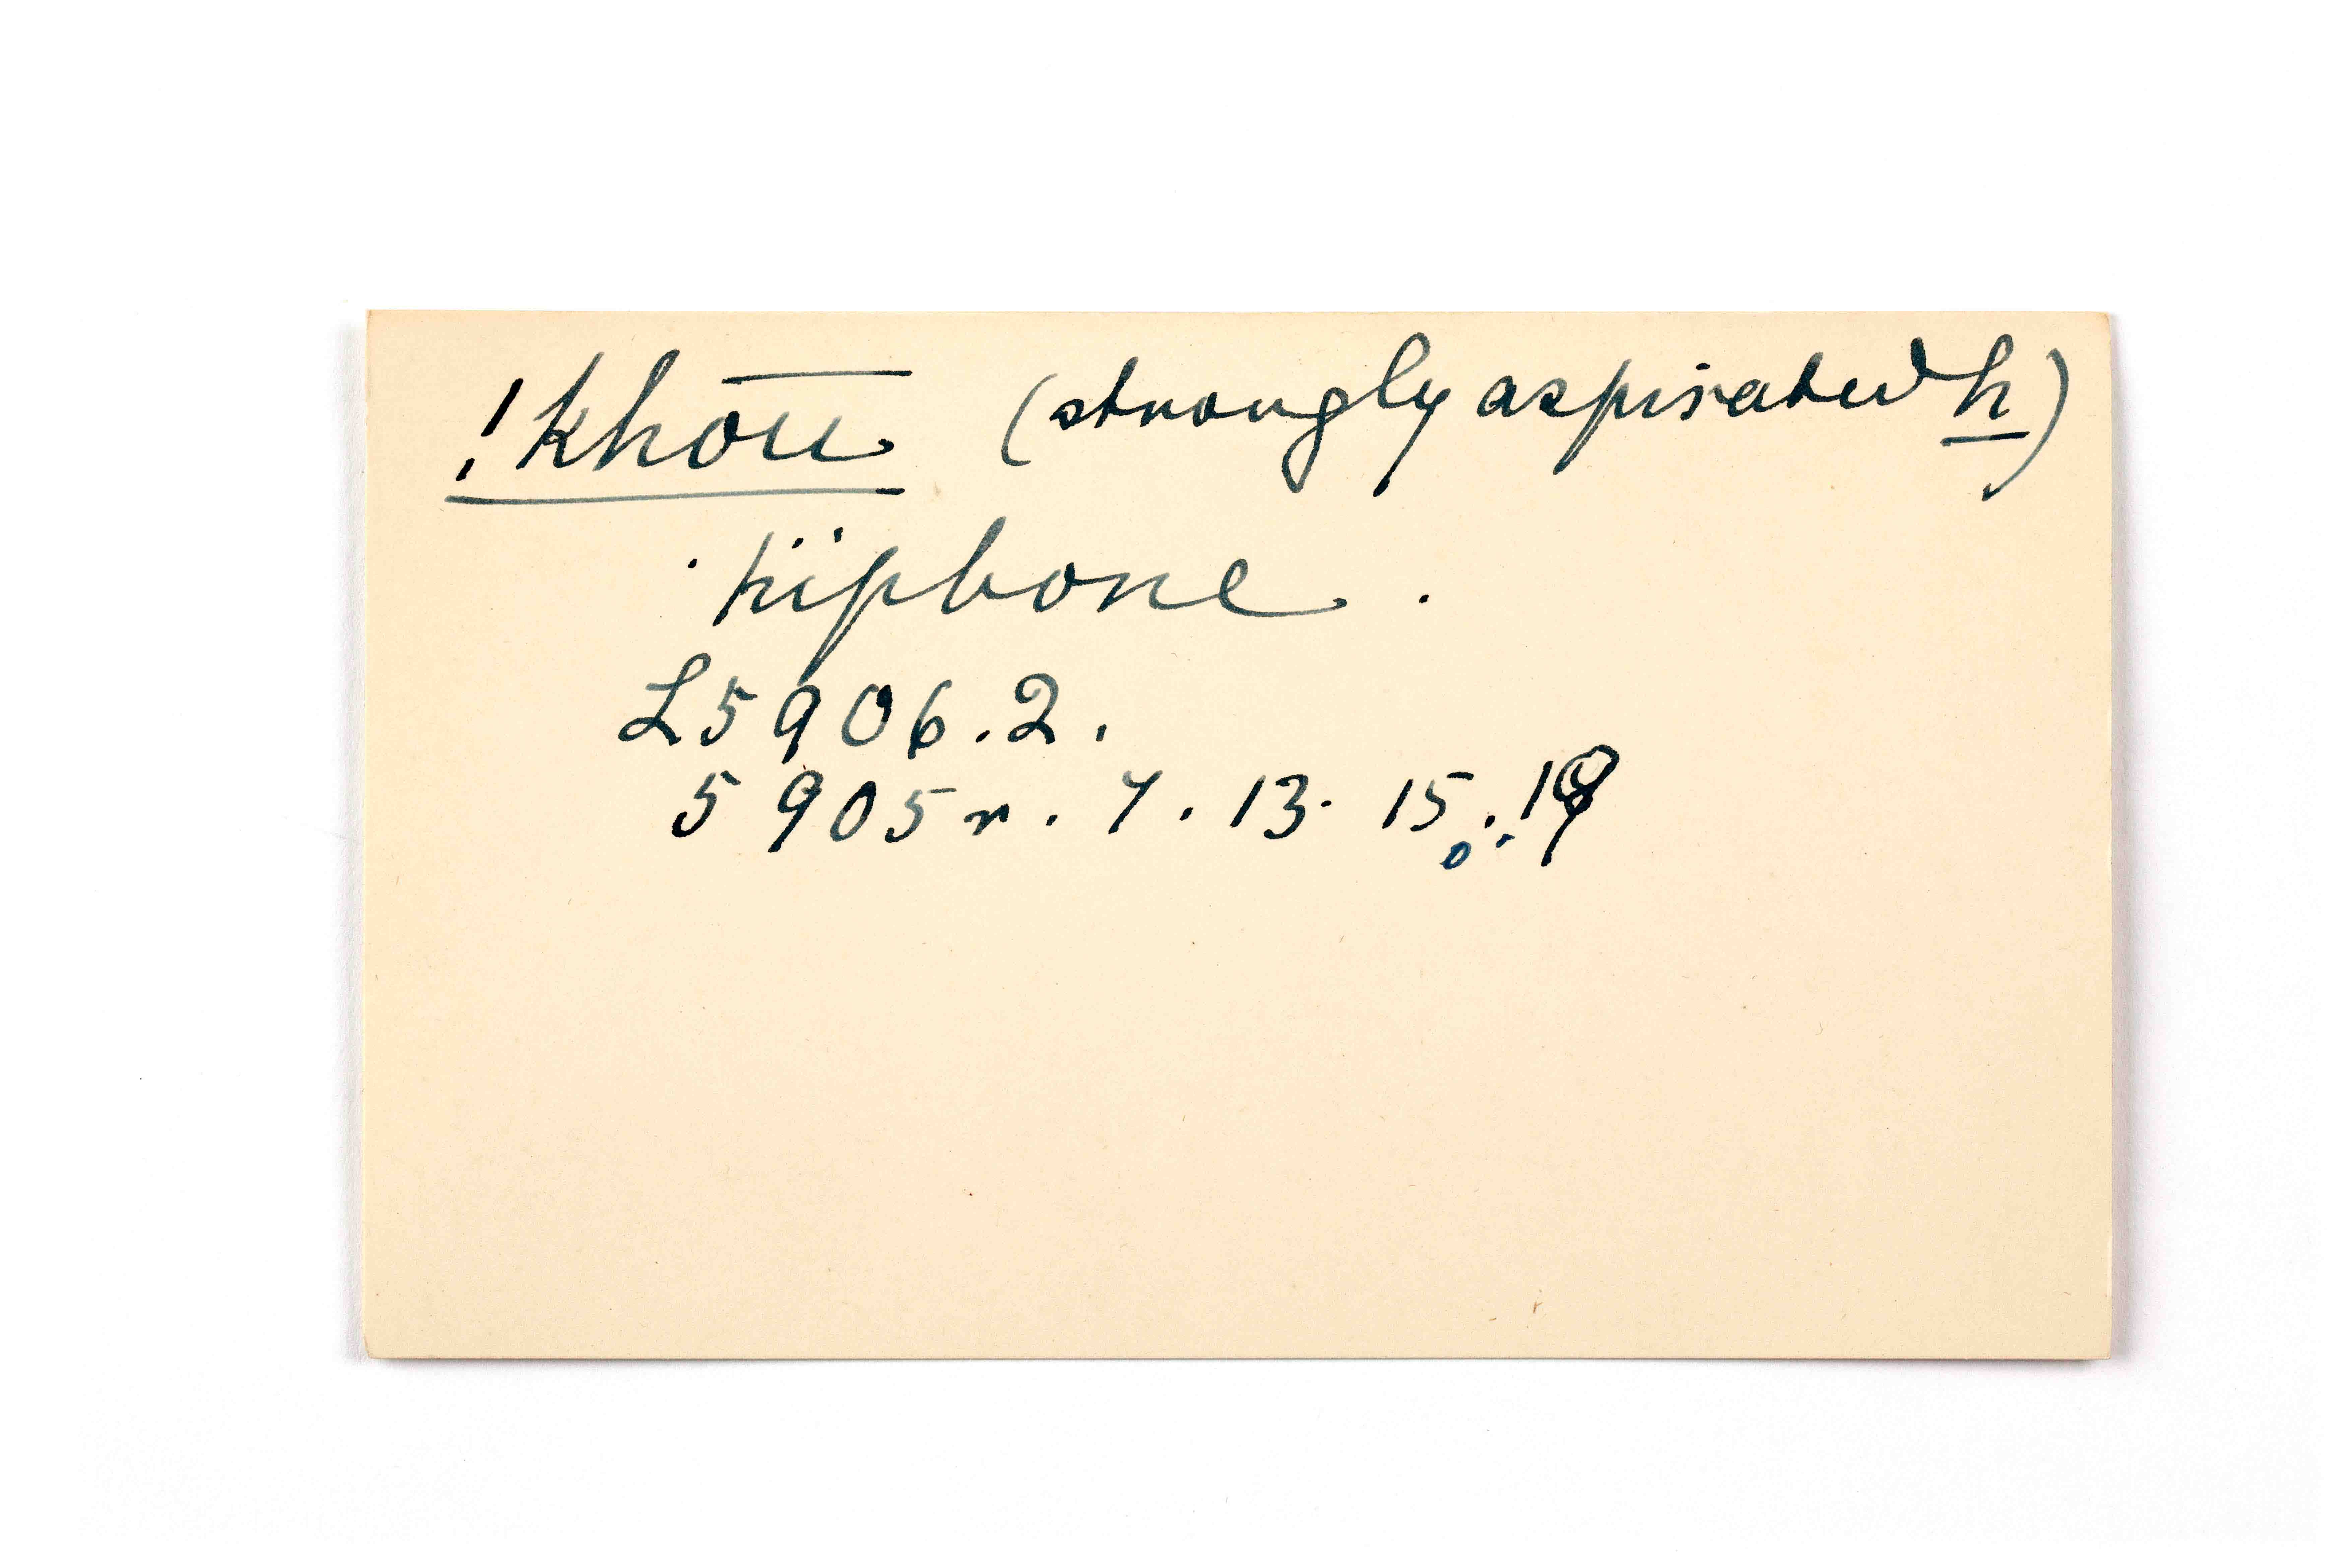 !khou (strongly aspirated h)
hipbone.
L5906.2.
5905r. 7. 13. 15. 19